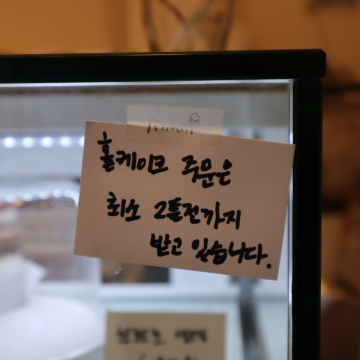 홀케이크 주문은
최소 2틀전까지
받고 있습니다.